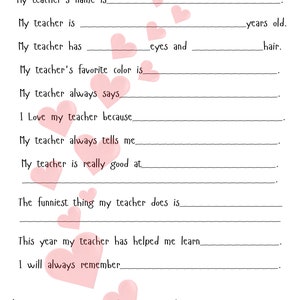 My teacher's name is____________________.
My teacher is ____________________years old.
My teacher has __________eyes and __________hair.
My teacher's favorite color is____________________.
My teacher always says____________________.
I Love my teacher because____________________.
My teacher always tells me____________________.
My teacher is really good at____________________
____________________.
The funniest thing my teacher does is____________________
____________________.
This year my teacher has helped me learn____________________.
I will always remember____________________.